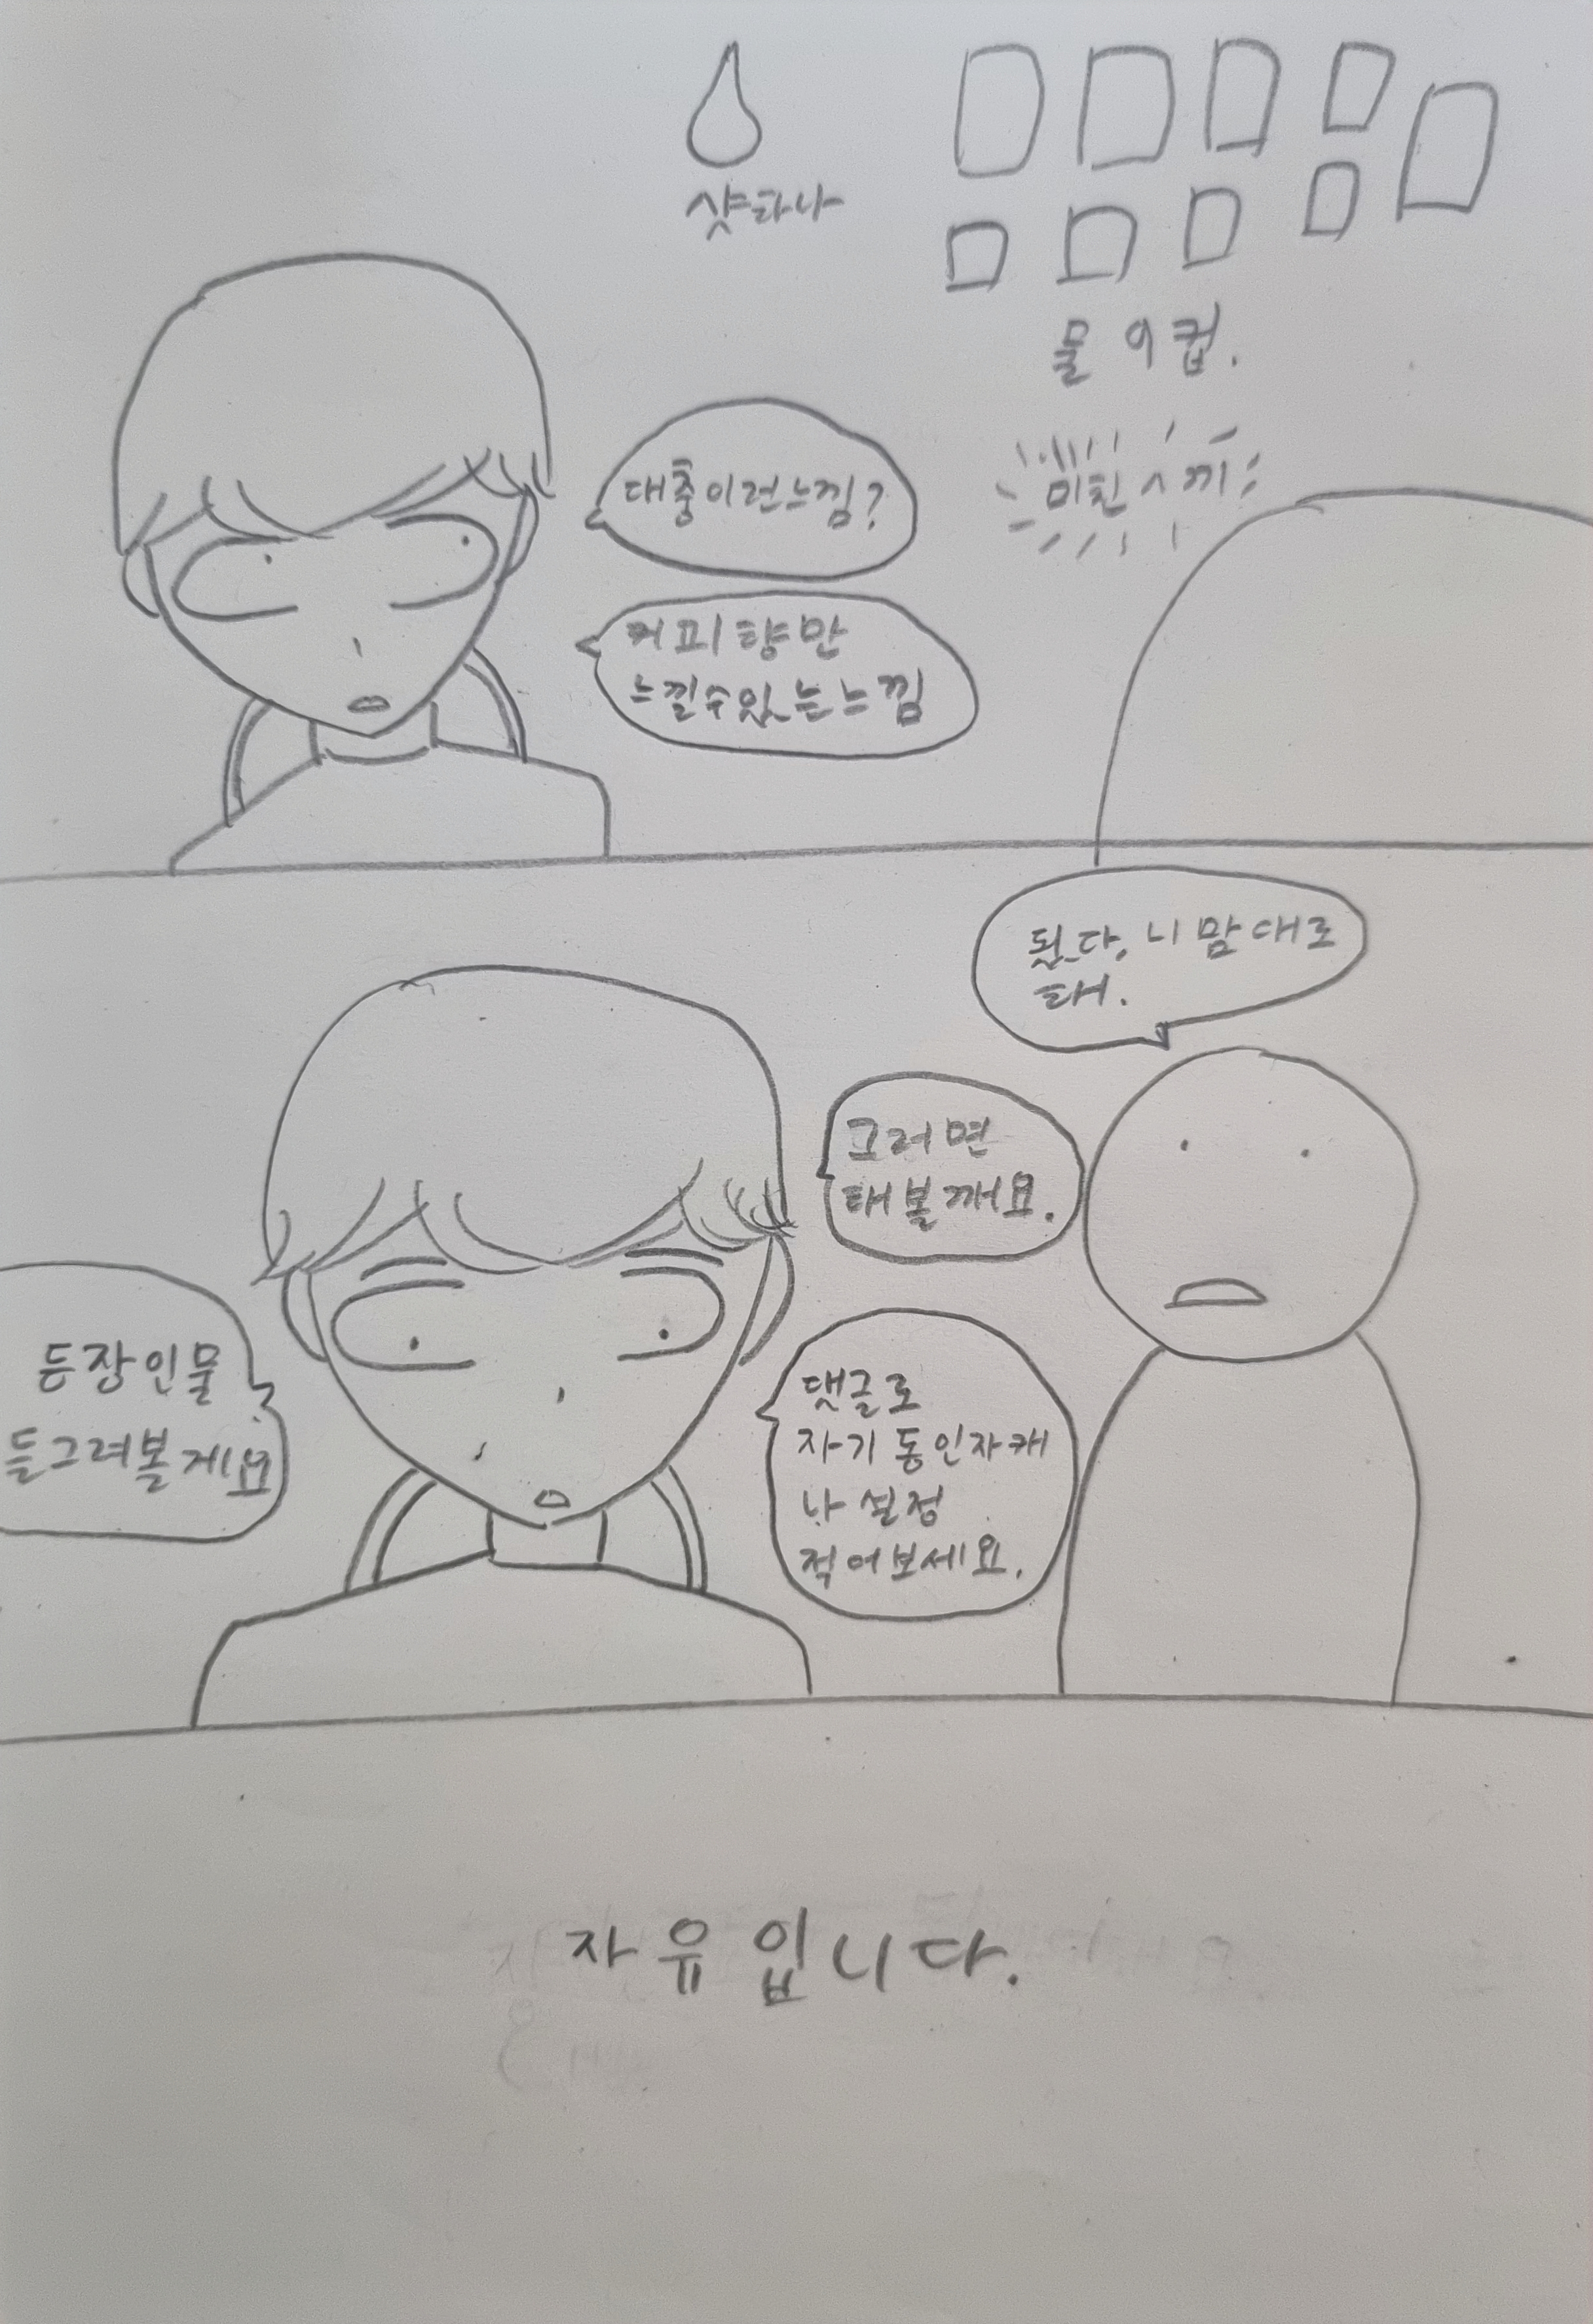 샷하나
물 9컵.
미친 ㅅ끼
대충이런느낌?
커피향만
느낄수있는느낌
됬다, 니 맘대로
해.
그러면
해볼께요.
등장인물
들그려볼게요
댓글로
자기동인자캐
나 설정
적어보세요.
자유입니다.